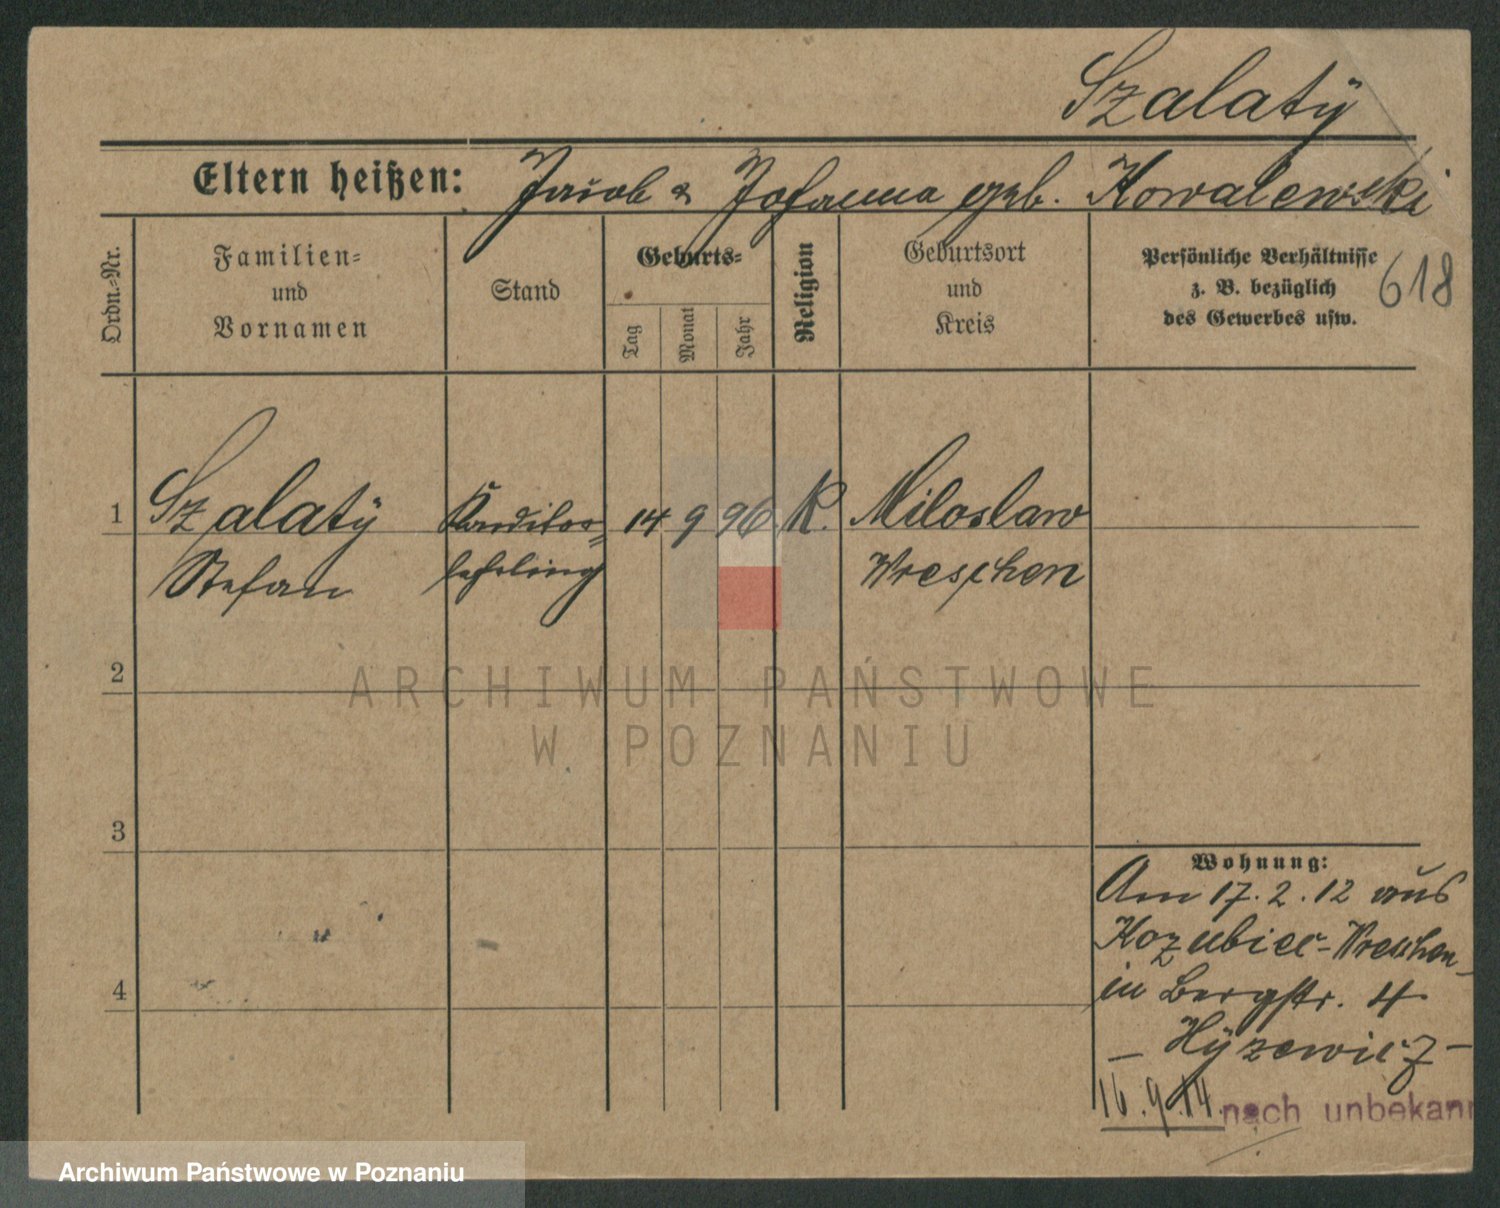 Szalatÿ
Eltern heißen: Jacob & Johanna geb. Kowalewski
Ordn.=Nr.
Familien=
und
Vornamen
Stand
Geburts=
Tag
Monat
Jahr
Religion
Geburtsort
und
Kreis
Persönliche Verhältnisse
z. B. bezüglich
des Gewerbes usw.
618
1 Szalatÿ Konditor= 14 9 96 K. Miloslaw
Stefan lehrling Wreschen
2
ARCHIWUM PAŃSTWOWE
W POZNANIU
3
Wohnung:
Am 17.2.12 aus
Wreschen
4 in Bergstr. 4
– Hÿzewicz –
16.9.14. nach unbekann
Archiwum Państwowe w Poznaniu